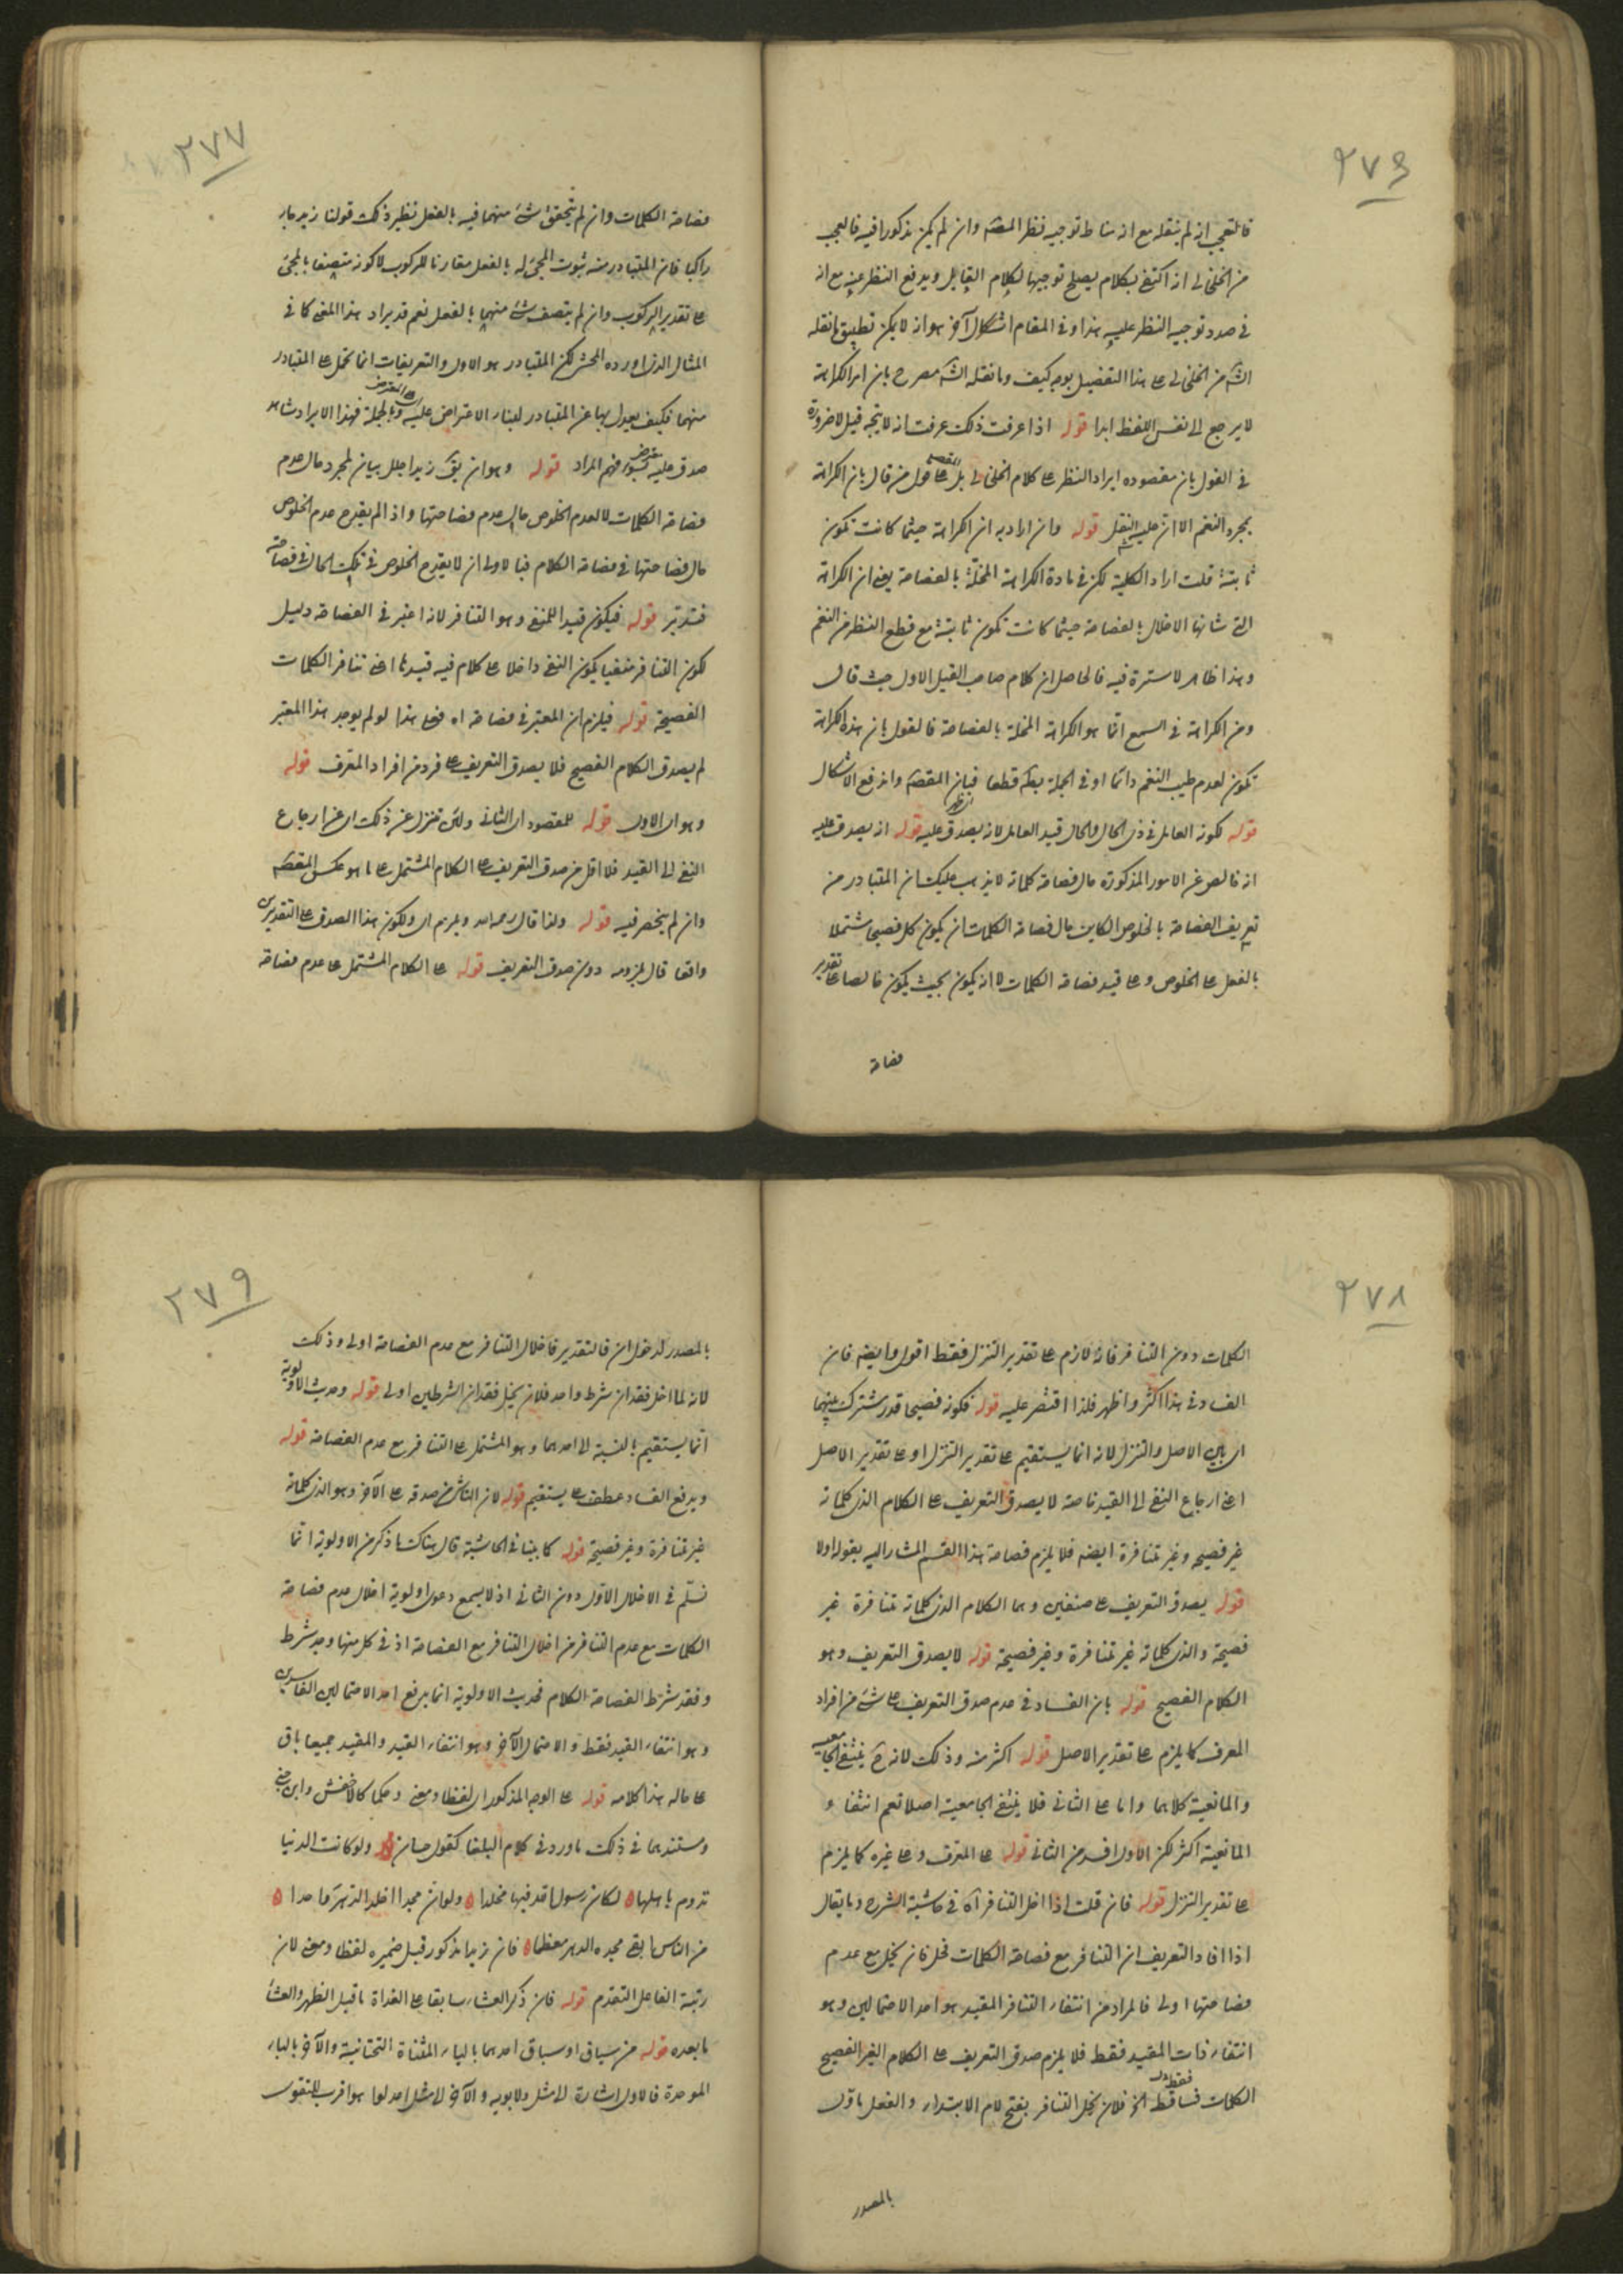 ٢٧٦
فالتعجب انه لم ينقله مع انه مناط توجيه نظر المصنف وان لم يكن مذكورا فيه فالعجب
من الخلخالى انه اكتفى بكلام يصلح توجيها لكلام القايل ويدفع النظر عنه مع انه
فى صدد توجيه النظر عليه هذا وفى المقام اشكال آخر هو انه لا يمكن تطبيق ما نقله
الش من الخلخالى على هذا التفصيل بوجه كيف وما نقله الش مصرح بان امر الكراهة
لا يرجع الى نفس اللفظ ابدا قوله اذا عرفت ذلك عرفت انه لا يتجه قيل لا ضرورة
فى القول بان مقصوده ايراد النظر على كلام الخلخالى بل على قول من قال بان الكراهة
بمجرد النغم الا ان عليه النقل قوله وان اراد به ان الكراهة حيثما كانت تكون
ثابتة قلت اراد الكلية لكن فى مادة الكراهة المخلة بالفصاحة يعنى ان الكراهة
التى شانها الاخلال بالفصاحة حيثما كانت تكون ثابتة مع قطع النظر عن النغم
وهذا ظاهر لا سترة فيه فالحاصل ان كلام صاحب القيل الاول حيث قال
ومن الكراهة فى السمع انما هو الكراهة المخلة بالفصاحة فالقول بان هذه الكراهة
تكون لعدم طيب النغم دائما او فى الجملة بط قطعا فبان المقصد واندفع الاشكال
قوله لكونه العامل فى ذى الحال والحال قيد العامل لانه يصدق عليه قوله انه يصدق عليه
انه خالص عن الامور المذكورة حال فصاحة كلماته لا يذهب عليك ان المتبادر من
تعريف الفصاحة بالخلوص الكاين حال فصاحة الكلمات ان يكون كل فصيح مشتملا
بالفعل على الخلوص وعلى قيد فصاحة الكلمات لا انه يكون بحيث يكون خالصا على تقدير
فصاحة
٢٧٧
فصاحة الكلمات وان لم يتحقق شئ منهما فيه بالفعل نظير ذلك قولنا زيد جاء
راكبا فان المتبادر منه ثبوت المجئ له بالفعل مقارنا للركوب لا كونه متصفا بالمجئ
على تقدير الركوب وان لم يتصف شئ منهما بالفعل نعم قد يراد هذا المعنى كما فى
المثال الذى اورده المحشى لكن المتبادر هو الاول والتعريفات انما تحمل على المتبادر
منهما فكيف يعدل بها عن المتبادر لبناء الاعتراض عليه وبالجملة فهذا الايراد شاهد
صدق عليه بسوء فهم المراد قوله وهو ان يق زيدا جلل بيان لمجرد حال عدم
فصاحة الكلمات لا لعدم الخلوص حال عدم فصاحتها واذا لم يقدح عدم الخلوص
حال فصاحتها فى فصاحة الكلام فبالاولى ان لا يقدح الخلوص فى تلك الحال فى فصاحته
فتدبر قوله فيكون قيدا للمنفى وهو التنافر لانه اعتبر فى الفصاحة دليل
لكون التنافر منفيا يكون النفى داخلا على كلام فيه قيد ما اعنى تنافر الكلمات
الفصيحة قوله فيلزم ان المعتبر فى فصاحة اه فعلى هذا لو لم يوجد هذا المعتبر
لم يصدق الكلام الفصيح فلا يصدق التعريف على فرد من افراد المعرف قوله
وهو اى الاول قوله للمقصود اى الثانى ولئن تنزل عن ذلك اى عن ارجاع
النفى الى القيد فلا اقل من صدق التعريف على الكلام المشتمل على ما هو عكس المقصد
وان لم ينحصر فيه قوله ولذا قال رحمه الله ويلزم اى ولكون هذا الصدق على التقديرين
واقعا قال يلزمه دون صدق التعريف قوله على الكلام المشتمل على عدم فصاحة
٢٧٨
الكلمات دون التنافر فانه لازم على تقدير التنزل فقط اقول وايضه فان
الفساد فى هذا اكثر واظهر فلذا اقتصر عليه قوله فكونه فصيحا قدر مشترك بينهما
اى بين الاصل والتنزل لانه انما يستقيم على تقدير التنزل او على تقدير الاصل
اعنى ارجاع النفى الى القيد خاصة لا يصدق التعريف على الكلام الذى كلماته
غير فصيحة وغير متنافرة ايضه فلا يلزم فصاحة هذا القسم المشار اليه بقوله اولا
قوله يصدق التعريف على صنفين وهما الكلام الذى كلماته متنافرة غير
فصيحة والذى كلماته غير متنافرة وغير فصيحة قوله لا يصدق التعريف وهو
الكلام الفصيح قوله بان الفساد فى عدم صدق التعريف على شئ من افراد
المعرف كما يلزم على تقدير الاصل قوله اكثر منه وذلك لانه ح ينتفى الجامعية
والمانعية كلاهما واما على الثانى فلا ينتفى الجامعية اصلا نعم انتفاء
المانعية اكثر لكن الاول افسد من الثانى قوله على المعرف وعلى غيره كما يلزم
على تقدير التنزل قوله فان قلت اذا اخل التنافر آه فى حاشية الشرح وما يقال
اذا افاد التعريف ان التنافر مع فصاحة الكلمات مخل فان يخل مع عدم
فصاحتها اولى فالمراد من انتفاء التنافر المقيد هو احد الاحتمالين وهو
انتفاء ذات المقيد فقط فلا يلزم صدق التعريف على الكلام الغير الفصيح
الكلمات فساقط الخ فلان يخل التنافر بفتح لام الابتداء والفعل ماول
بالمصدر
٢٧٩
بالمصدر لدخول ان فالتقدير فاخلال التنافر مع عدم الفصاحة اولى وذلك
لانه لما اخل فقدان شرط واحد فلان يخل فقدان الشرطين اولى قوله وحديث الاولوية
انما يستقيم بالنسبة الى احدهما وهو المشتمل على التنافر مع عدم الفصاحة قوله
ويدفع الفساد عطف على يستقيم قوله لان الناشى من صدقه على الآخر وهو الذى كلماته
غير متنافرة وغير فصيحة قوله كما بينا فى الحاشية قال هناك ما ذكر من الاولوية انما
تسلم فى الاخلال الاول دون الثانى اذ لا يسمع دعوى اولوية اخلال عدم فصاحة
الكلمات مع عدم التنافر من اخلال التنافر مع الفصاحة اذ فى كل منهما وجد شرط
وفقد شرط الفصاحة الكلام فحديث الاولوية انما يرفع احد الاحتمالين الفاسدين
وهو انتفاء القيد فقط والاحتمال الآخر وهو انتفاء القيد والمقيد جميعا باق
على حاله هذا كلامه قوله على الوجه المذكور اى لفظا ومعنى وحكما كالاخفش وابن جنى
ومستندهما فى ذلك ما ورد فى كلام البلغا كقول حسان ولو كانت الدنيا
تدوم باهلها ۵ لكان رسول الله فيها مخلدا ۵ ولو ان مجدا اخلد الدهر واحدا ۵
من الناس ابقى مجده الدهر مطعما ۵ فان زيدا مذكور قبل ضميره لفظا ومعنى لان
رتبة الفاعل التقدم قوله فان ذكر العشاء سابقا على الغداة ما قبل الظهر والعشا
ما بعده قوله من سياق او سباق احدهما بالياء المثناة التحتانية والآخر بالباء
الموحدة فالاول اشارة الى مثل ولابويه والآخر الى مثل اعدلوا هو اقرب للتقوى